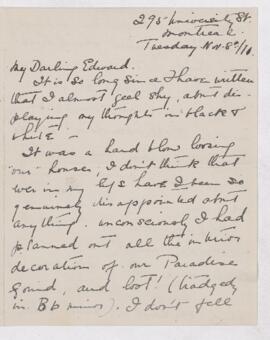 295 University St.
Montreal.
Tuesday Nov. 8th/10.
My Darling Edward.
It is so long since I have written
that I almost feel shy, about dis-
playing my thoughts in black &
white -
It was a hard blow loosing
"our" house; I don't think that
ever in my life have I been so
genuinely disappointed about
anything. Unconsciously I had
planned out all the interior
decorations of our Paradise
found, and lost! (tragedy
in Bb minor). I don't feel